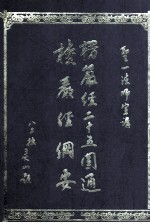 聖一法師宣講
楞嚴經二十五圓通
楞嚴經綱要